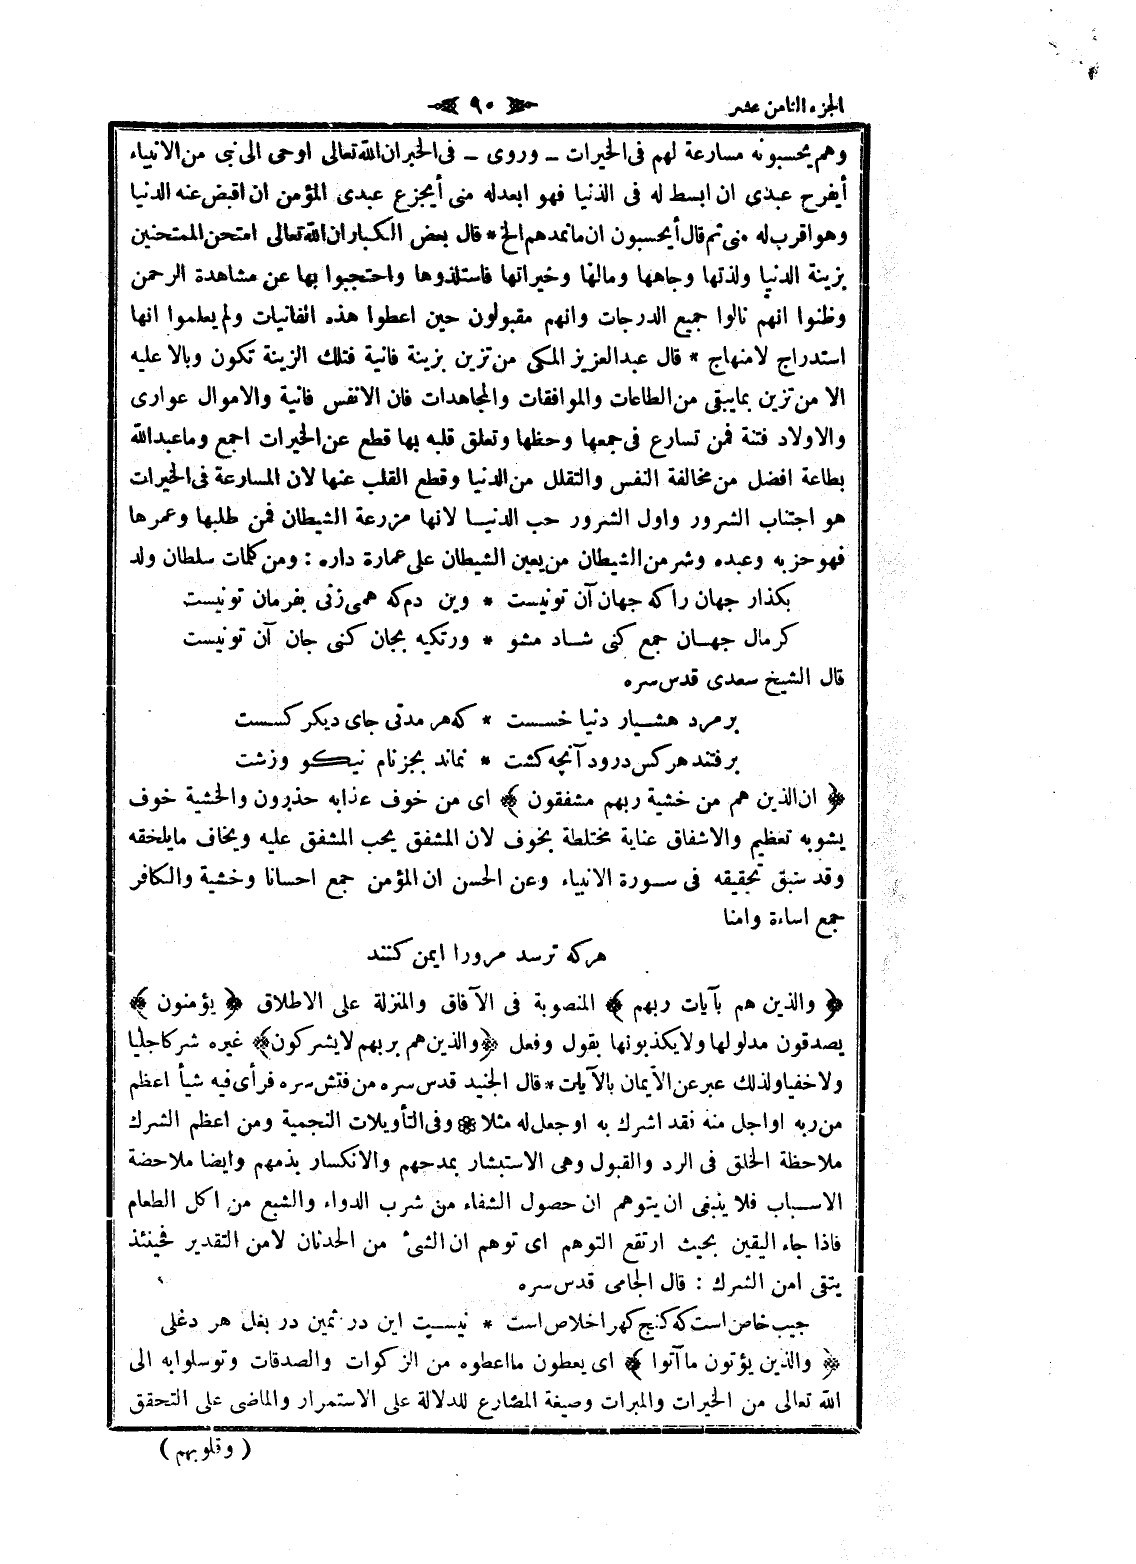 الجزء الثامن عشر
٩٠
وهم يحسبونه مسارعة لهم فى الخيرات ـ وروى ـ فى الخبر ان الله تعالى اوحى الى نبى من الانبياء
أيفرح عبدى ان ابسط له فى الدنيا فهو ابعد له منى أيجزع عبدى المؤمن ان اقبض عنه الدنيا
وهو اقرب له منى ثم قال أيحسبون ان ما نمدهم الخ * قال بعض الكبار ان الله تعالى امتحن الممتحنين
بزينة الدنيا ولذتها وجاهها ومالها وخيراتها فاستلذوها واحتجبوا بها عن مشاهدة الرحمن
وظنوا انهم نالوا جميع الدرجات وانهم مقبولون حين اعطوا هذه الفانيات ولم يعلموا انها
استدراج لا منهاج * قال عبد العزيز المكى من تزين بزينة فانية فتلك الزينة تكون وبالا عليه
الا من تزين بما يبقى من الطاعات والموافقات والمجاهدات فان الانفس فانية والاموال عوارى
والاولاد فتنة فمن تسارع فى جمعها وحظها وتعلق قلبه بها قطع عن الخيرات اجمع وما عبد الله
بطاعة افضل من مخالفة النفس والتقلل من الدنيا وقطع القلب عنها لان المسارعة فى الخيرات
هو اجتناب الشرور واول الشرور حب الدنيا لانها مزرعة الشيطان فمن طلبها وعمرها
فهو حزبه وعبده وشر من الشيطان من يعين الشيطان على عمارة داره : ومن كلمات سلطان ولد
بكذار جهان را كه جهان آن تونيست * وين دم كه همى زنى بفرمان تونيست
كر مال جهان جمع كنى شاد مشو * ور تكيه بجان كنى جان آن تونيست
قال الشيخ سعدى قدس سره
بر مرد هشيار دنيا خسست * كه هر مدتى جاى ديكر كسست
برفتند هر كس درود آنچه كشت * نماند بجز نام نيكو وزشت
﴿ ان الذين هم من خشية ربهم مشفقون ﴾ اى من خوف عذابه حذرون والخشية خوف
يشوبه تعظيم والاشفاق عناية مختلطة بخوف لان المشفق يحب المشفق عليه ويخاف ما يلحقه
وقد سبق تحقيقه فى سورة الانبياء وعن الحسن ان المؤمن جمع احسانا وخشية والكافر
جمع اساءة وامنا
هركه ترسد مرورا ايمن كنند
﴿ والذين هم بآيات ربهم ﴾ المنصوبة فى الآفاق والمنزلة على الاطلاق ﴿ يؤمنون ﴾
يصدقون مدلولها ولا يكذبونها بقول وفعل ﴿ والذين هم بربهم لا يشركون ﴾ غيره شركا جليا
ولا خفيا ولذلك عبر عن الايمان بالآيات * قال الجنيد قدس سره من فتش سره فرأى فيه شيأ اعظم
من ربه او اجل منه نقد اشرك به او جعل له مثلا * وفى التأويلات النجمية ومن اعظم الشرك
ملاحظة الخلق فى الرد والقبول وهى الاستبشار بمدحهم والانكسار بذمهم وايضا ملاحضة
الاسباب فلا ينبغى ان يتوهم ان حصول الشفاء من شرب الدواء والشبع من اكل الطعام
فاذا جاء اليقين بحيث ارتفع التوهم اى توهم ان الشئ من الحدثان لا من التقدير فحينئذ
يتقى امن الشرك : قال الجامى قدس سره
جيب خاص است كه كنج كهر اخلاص است * نيسيت اين در ثمين در بغل هر دغلى
﴿ والذين يؤتون ما آتوا ﴾ اى يعطون ما اعطوه من الزكوات والصدقات وتوسلوا به الى
الله تعالى من الخيرات والمبرات وصيغة المضارع للدلالة على الاستمرار والماضى على التحقق
( وقلوبهم )